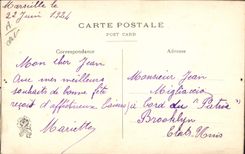 Marseille le
22 Juin 1924
CARTE POSTALE
POST CARD
Correspondance
Adresse
Mon cher Jean
Que mes meilleurs
souhaits de bonne fête
reçoit d'affectueux baisers
Mariette
Monsieur Jean
Migliaccio
à bord du "Patria"
Brooklyn
Etats-Unis